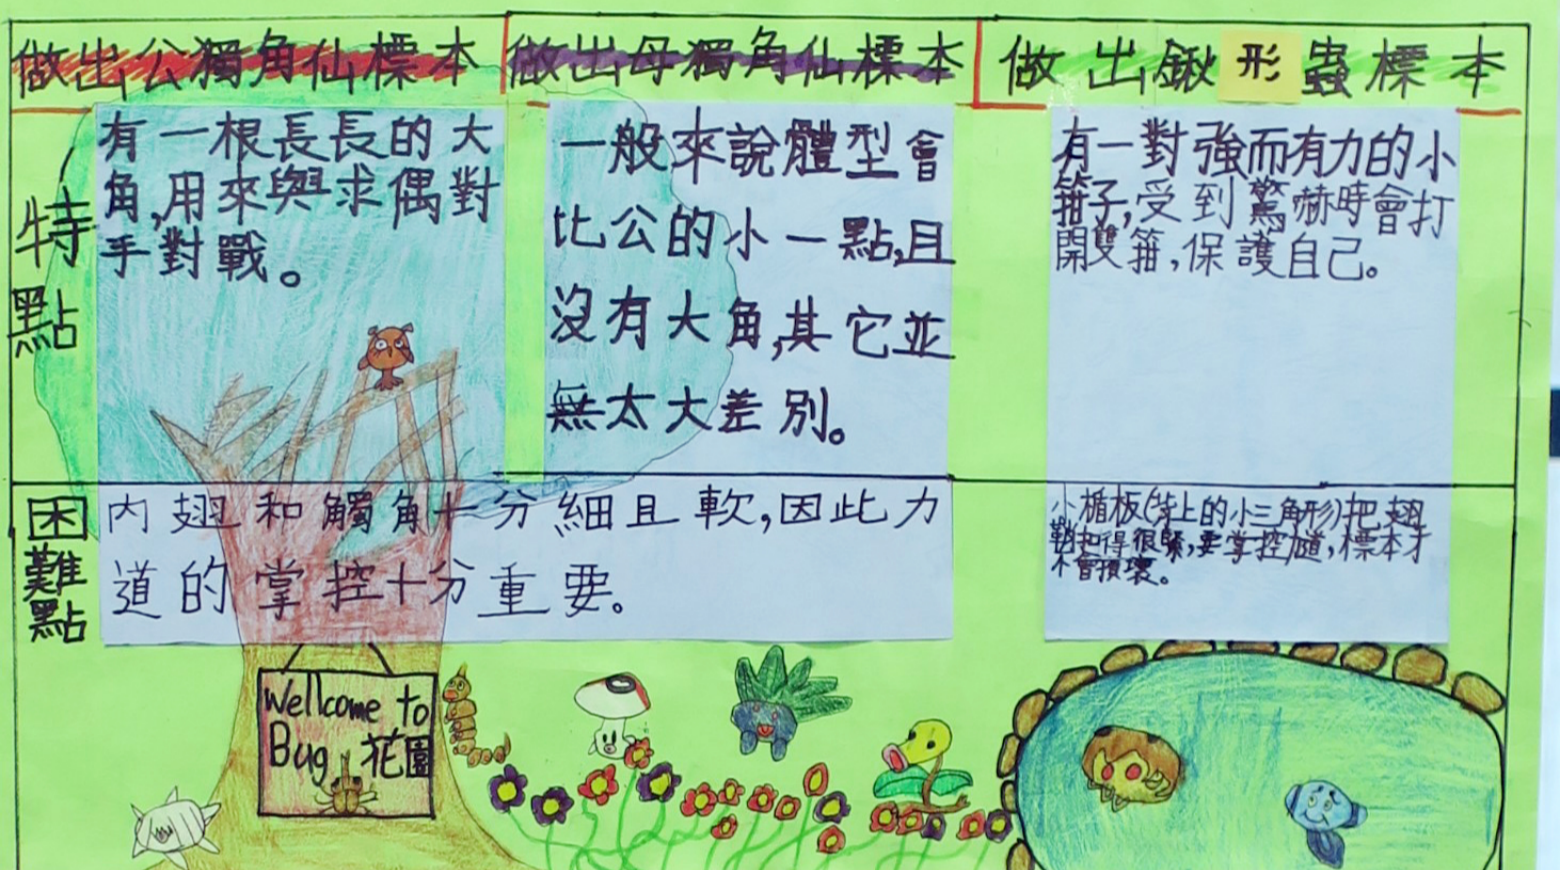 做出公獨角仙標本
做出母獨角仙標本
做出鍬形蟲標本
特點
有一根長長的大
角,用來與求偶對
手對戰。
一般來說體型會
比公的小一點,且
沒有大角,其它並
無太大差別。
有一對強而有力的小
箝子,受到驚嚇時會打
開雙箝,保護自己。
困難點
內翅和觸角十分細且軟,因此力
道的掌控十分重要。
小楯板(背上的小三角形)把翅
鞘扣得很緊,要掌控力道,標本才
不會損壞。
Wellcome to
Bug 花園